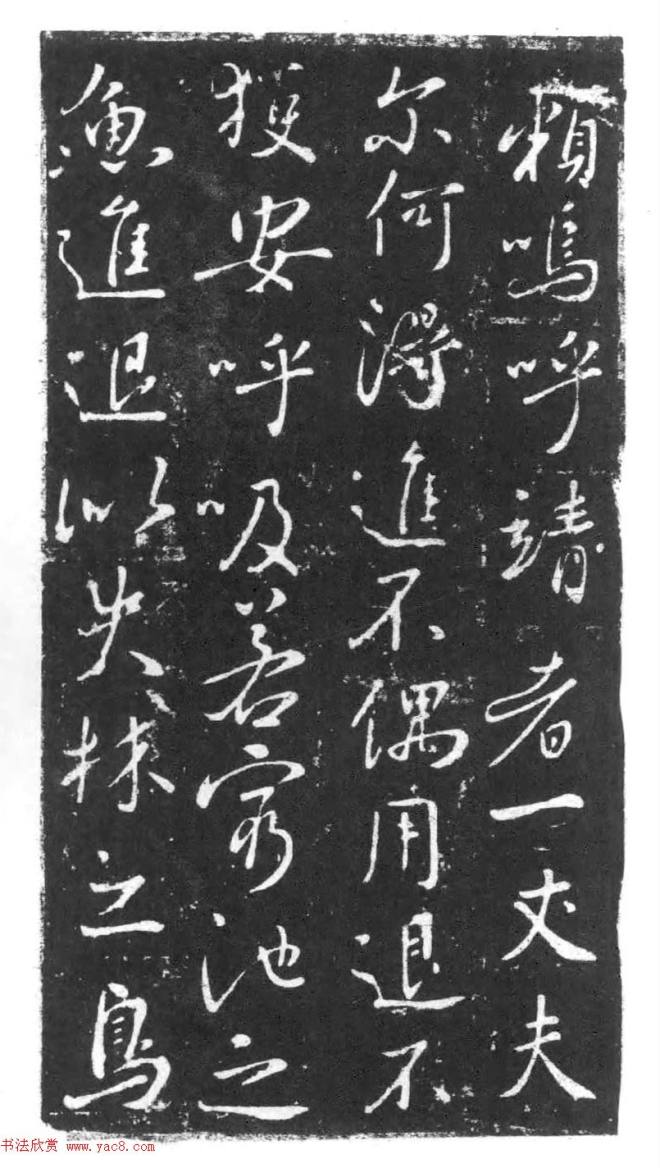 賴嗚呼靖者一丈夫
尔何得進不偶用退不
獲安呼吸若窮池之
魚進退似失林之鳥
书法欣赏 www.yac8.com